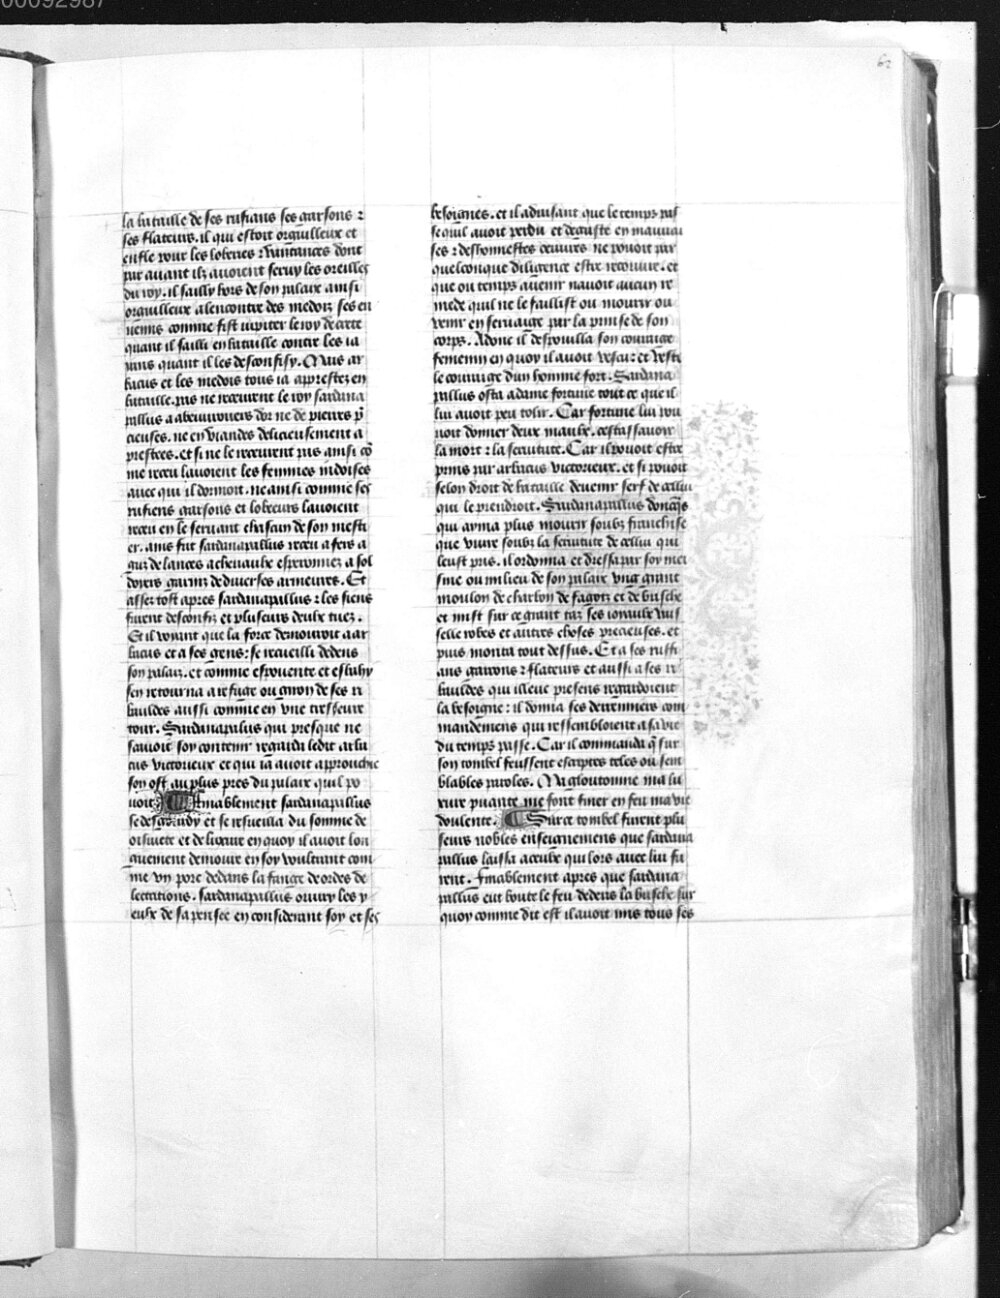 00092987
62
la bataille de ses rufians ses garsons ⁊
ses flateurs. il qui estoit orguilleux et
enfle pour les loberies ⁊ vantances dont
par auant ilz auoient seruy les oreilles
du roy. il sailly hors de son palaix ainsi
orguilleux alencontre des medois ses en
nemis comme fist iupiter le roy de crete
quant il sailli en bataille contre les ia
yans quant il les desconfisy. Mais ar
bacus et les medois tous ia apprestez en
bataille. pas ne receurent le roy sardana
pallus a abeuuroners dor ne de pierres p̄
cieuses. ne en viandes delicieusement a
prestees. et si ne le receurent pas ainsi cō
me receu lauoient les femmes indoises
auec qui il dormoit. ne ainsi comme ses
rufiens garsons et lobeurs lauoient
receu en le seruant chascun de son mesti
er. ains fut sardanapallus receu a fers a
guz de lances a cheuaulx esperonnez a sol
doiers garniz de diuerses armeures. Et
assez tost apres sardanapallus ⁊ les siens
furent desconfiz et pluseurs deulx tuez.
Et il voiant que la force demouroit a ar
bacus et a ses gens: se recueilli dedens
son palais. et comme espouente et esbahy
sen retourna a refuge ou giron de ses ri
bauldes aussi comme en vne tresseure
tour. Sardanapalus qui presque ne
sauoit soy contenir regarda ledit arba
cus victorieux et qui ia auoit approuchie
son ost au plus pres du palaix quil po
uoit. Finablement sardanapallus
se desgourdy et se resueilla du somme de
oisiuete et de luxure en quoy il auoit lon
guement demoure en soy voultrant com
me vn porc dedans la fange de ordes de
lectations. sardanapallus ouury les y
eulx de sa pensee en considerant soy et ses
besoignes. et il aduisant que le temps pas
se quil auoit perdu et degaste en mauuai
ses ⁊ deshonnestes oeuures ne pouoit par
quelconque diligence estre recouure. et
que ou temps auenir nauoit aucun re
mede quil ne le faillist ou mourir ou
venir en seruaige par la prinse de son
corps. Adonc il despouilla son couraige
femenin en quoy il auoit vescu: et vesti
le couraige dun homme fort. Sardana
pallus osta a dame fortune tout ce que il
lui auoit peu tolir. Car fortune lui pou
uoit donner deux maulx. cestassauoir
la mort ⁊ la seruitute. Car il pouoit estre
prins par arbacus victorieux. et si pouoit
selon droit de bataille deuenir serf de cellui
qui le prendroit. Sardanapallus doncq̄s
qui ayma plus mourir soubz franchise
que viure soubz la seruitute de cellui qui
leust pris. il ordonna et dressa par soy mes
sme ou milieu de son palaix vng grant
moulon de charbon de fagotz et de busche
et mist sur ce grant taz ses ioyaulx vais
selle robes et autres choses precieuses. et
puis monta tout dessus. Et a ses ruffi
ans garcons ⁊ flateurs et aussi a ses ri
bauldes qui illeuc presens regardoient
la besoigne: il donna ses derreniers com
mandemens qui ressembloient a sa vie
du temps passe. Car il commanda q̄ sur
son tombel feussent escriptes teles ou sem
blables paroles. Ma gloutonnie ma lu
xure puante me font finer en feu ma vie
doulente. Sur ce tombel furent plu
seurs nobles enseignemens que sardana
pallus laissa a ceulx qui lors auec lui fu
rent. Finablement apres que sardana
pallus eut boute le feu dedens la busche sur
quoy comme dit est il auoit mis tous ses